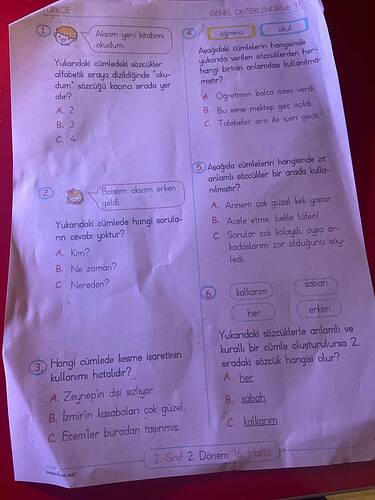 TÜRKÇE
GENEL DEĞERLENDİRME TESTİ
1.
Akşam yeni kitabımı
okudum.
Yukarıdaki cümledeki sözcükler
alfabetik sıraya dizildiğinde "oku-
dum" sözcüğü kaçıncı sırada yer
alır?
A. 2
B. 3
C. 4
2.
Babam akşam erken
geldi.
Yukarıdaki cümlede hangi sorula-
rın cevabı yoktur?
A. Kim?
B. Ne zaman?
C. Nereden?
3. Hangi cümlede kesme işaretinin
kullanımı hatalıdır?
A. Zeynep'in dişi sızlıyor.
B. İzmir'in kasabaları çok güzel.
C. Ecem'ler buradan taşınmış.
4.
öğrenci
okul
Aşağıdaki cümlelerin hangisinde
yukarıda verilen sözcüklerden her-
hangi birinin anlamdaşı kullanılma-
mıştır?
A. Öğretmen bolca ödev verdi.
B. Bu sene mektep geç açıldı.
C. Talebeler sıra ile içeri geçti.
5. Aşağıda cümlelerin hangisinde zıt
anlamlı sözcükler bir arada kulla-
nılmıştır?
A. Annem çok güzel kek yapar.
B. Acele etme, bekle lütfen!
C. Sorular çok kolaydı, oysa ar-
kadaşlarım zor olduğunu söy-
ledi.
6.
kalkarım
sabah
her
erken
Yukarıdaki sözcüklerle anlamlı ve
kurallı bir cümle oluşturulursa 2.
sıradaki sözcük hangisi olur?
A. her
B. sabah
C. kalkarım
2. Sınıf 2. Dönem 16. Hafta